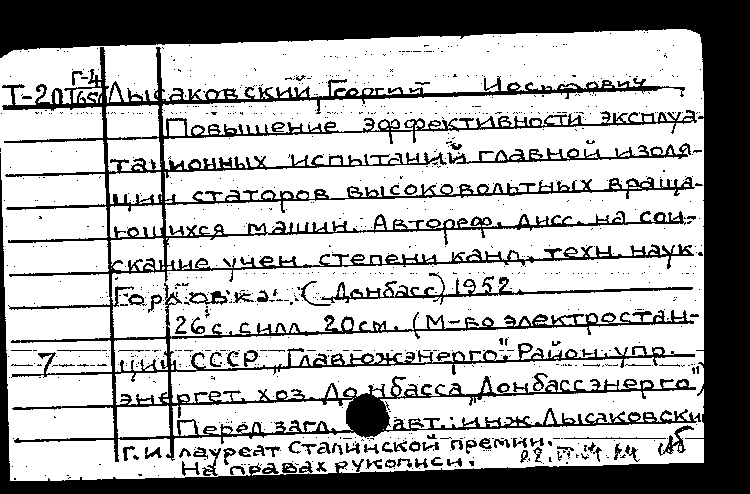 Г-4
Т-2П Лысаковский, Георгий Иосифович
Повышение эффективности эксплуа-
тационных испытаний главной изоля-
ции статоров высоковольтных враща-
ющихся машин. Автореф. дисс. на сои-
скание учен. степени канд. техн. наук.
Горловка (Донбасс) 1952.
26 с. с илл. 20см. (М-во электростан-
7 ций СССР. „Главюжэнерго". Район. упр.
энергет. хоз. Донбасса „Донбассэнерго")
Перед загл. авт.: инж. Лысаковски
Г.И. лауреат Сталинской премии.
На правах рукописи.